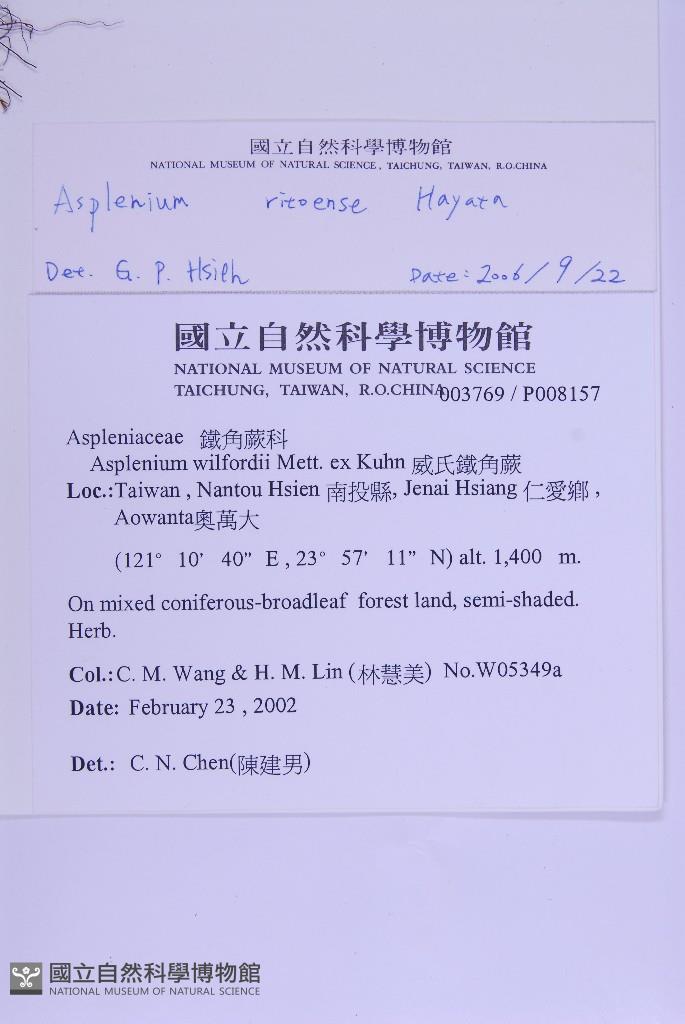 國立自然科學博物館
NATIONAL MUSEUM OF NATURAL SCIENCE, TAICHUNG, TAIWAN, R.O.CHINA
Asplenium ritoense Hayata
Det. G. P. Hsieh Date: 2006/9/22
國立自然科學博物館
NATIONAL MUSEUM OF NATURAL SCIENCE
TAICHUNG, TAIWAN, R.O.CHINA 003769 / P008157
Aspleniaceae 鐵角蕨科
Asplenium wilfordii Mett. ex Kuhn 威氏鐵角蕨
Loc.:Taiwan , Nantou Hsien 南投縣, Jenai Hsiang 仁愛鄉 ,
Aowanta奧萬大
(121° 10’ 40” E , 23° 57’ 11” N) alt. 1,400 m.
On mixed coniferous-broadleaf forest land, semi-shaded.
Herb.
Col.:C. M. Wang & H. M. Lin (林慧美) No.W05349a
Date: February 23 , 2002
Det.: C. N. Chen(陳建男)
國立自然科學博物館
NATIONAL MUSEUM OF NATURAL SCIENCE